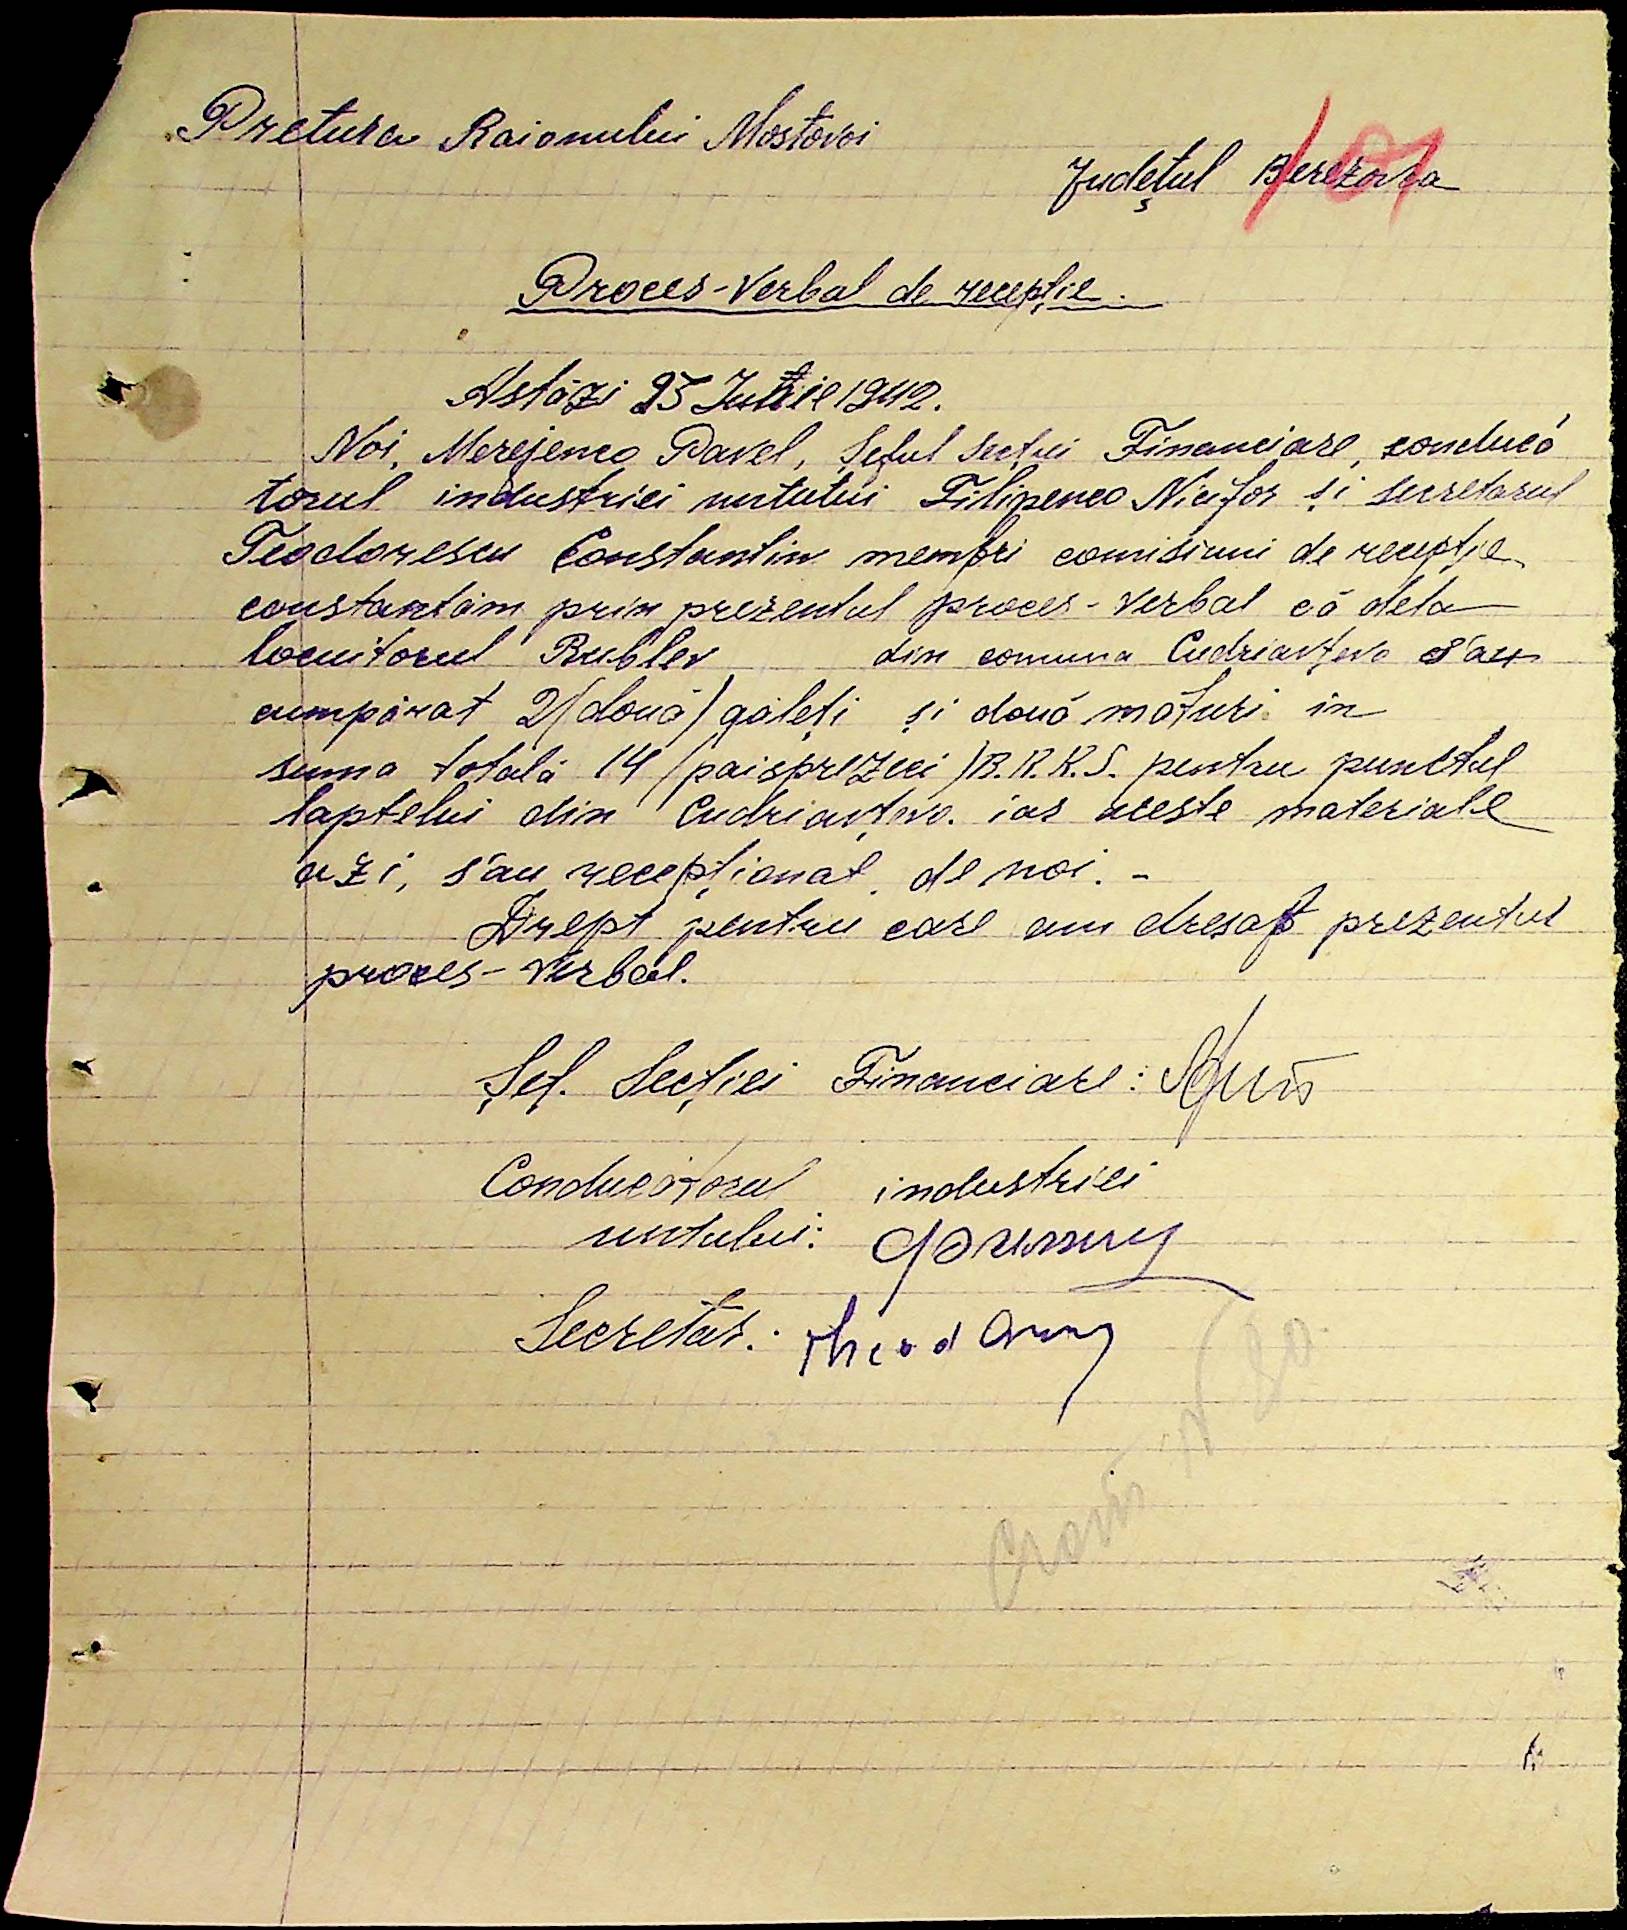 Pretura Raionului Mostovoi
Județul Berezovca
Proces-Verbal de recepție.
Astăzi 25 1942.
Noi, Merejenco Pavel, Șeful Secției Financiare, conducă
torul industriei untului Filipenco Nichifor și secretarul
Teodorescu Constantin membri comisiuni de recepție
constantăm prin prezentul proces-verbal că dela
locuitorul Rublev din comuna Cudriavțevo s'au
cumpărat 2/două/găleți și două mături in
suma totală 14/paisprezeci/R.R.K.S. pentru punctul
laptelui din Cudriavțevo. iar aceste materiale
azi, s'au recepționat de noi. -
Drept pentru care am dresat prezentul
proces-verbal.
Șef. Secției Financiare:
Conducătorul industriei
untului:
Secretar: Theod